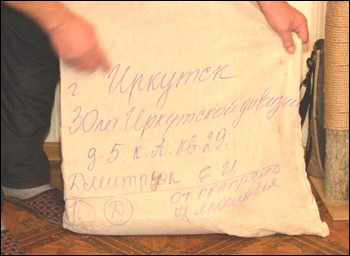 г Иркутск
30 лет Иркутской дивизии
д. 5. к. А. кв 29.
Дмитрук Е И
1. Д от